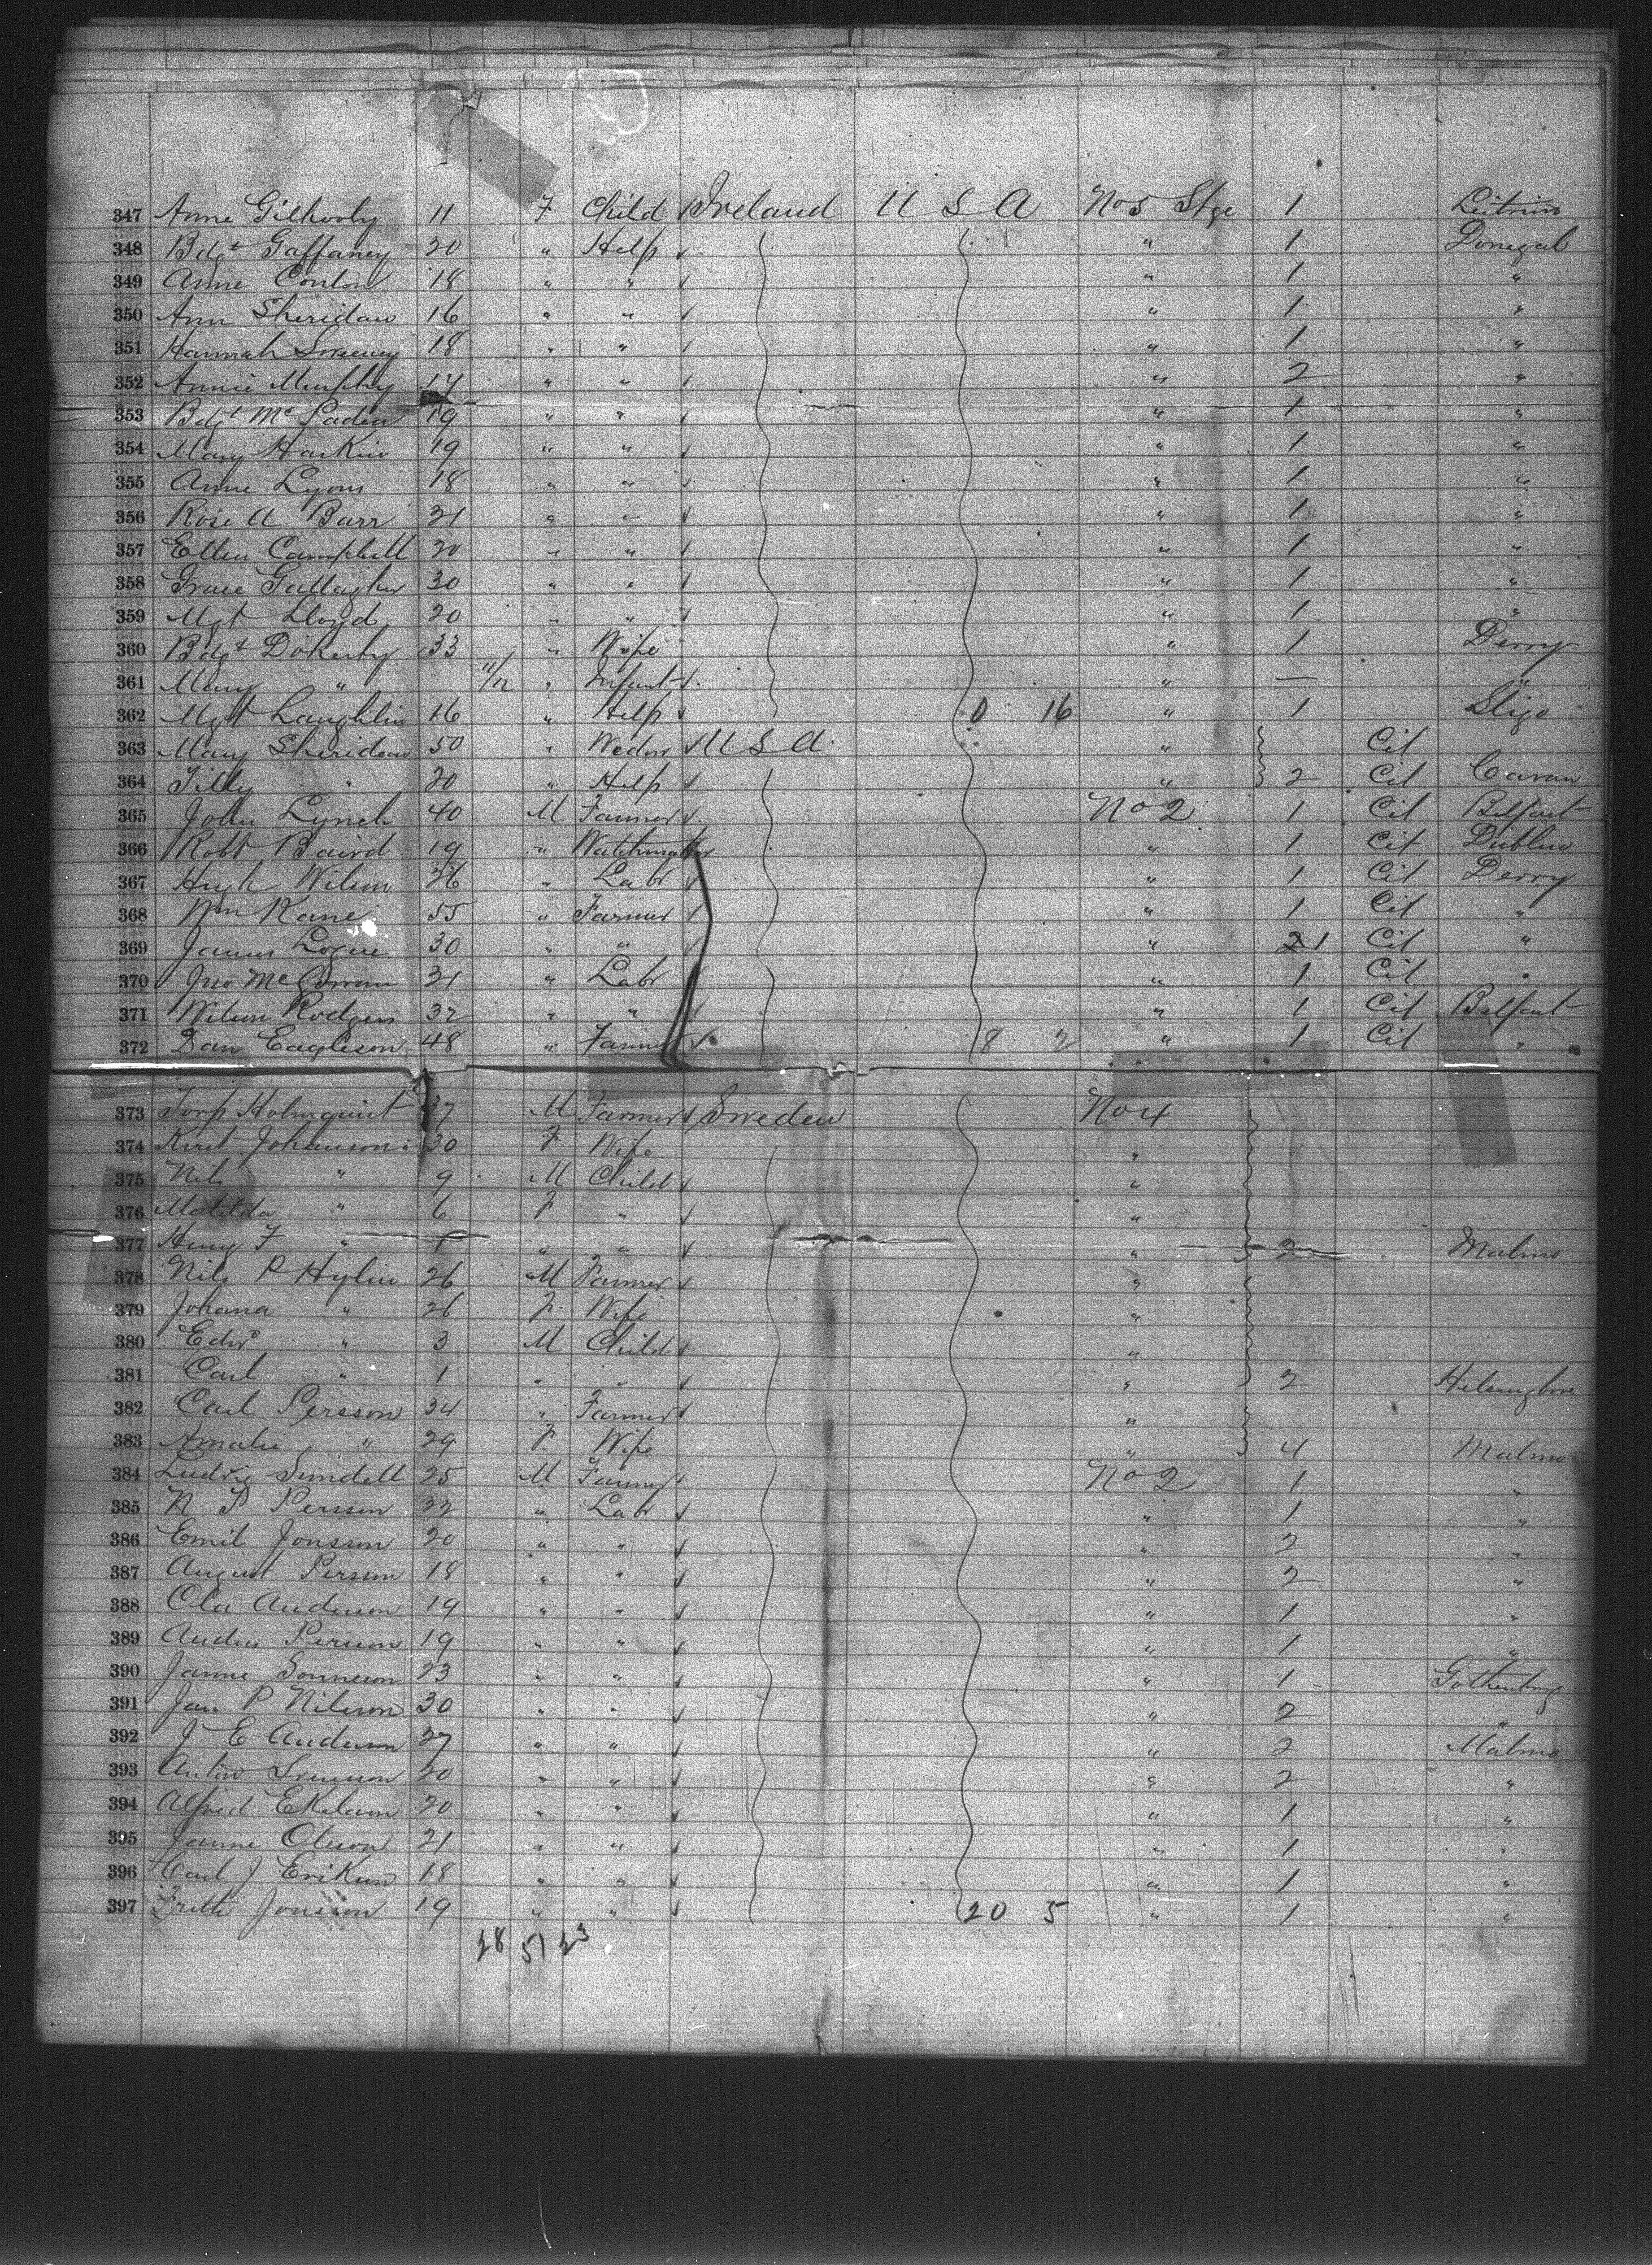 347 Anne Gilhooly 11 F Child Ireland U S A No 5 Stge 1 Leitrim
348 Bdgt Gaffaney 20 " Help " 1 Donegal
349 Anne Conlon 18 " " " 1 "
350 Ann Sheridan 16 " " " 1 "
351 Hannah Sweeny 18 " " " 1 "
352 Annie Murphy 17 " " " 2 "
353 Bdgt Mc Faden 19 " " " 1 "
354 Mary Harkin 19 " " " 1 "
355 Anne Lyons 18 " " " 1 "
356 Rose A Barr 21 " " " 1 "
357 Ellen Campbell 20 " " " 1 "
358 Grace Gallagher 30 " " " 1 "
359 Mgt Lloyd 20 " " " 1 "
360 Bdgt Doherty 33 " Wife " 1 Derry
361 Mary " 11/12 " Infant " — "
362 Mgt Laughlin 16 " Help 0 16 " 1 Sligo
363 Mary Sheridan 50 " Wedow U S A " Cit
364 Tilly " 20 " Help " 2 Cit Cavan
365 John Lynch 40 M Farmer No 2 1 Cit Belfast
366 Robt Baird 19 " Watchmaker " 1 Cit Dublin
367 Hugh Wilson 26 " Labr " 1 Cit Derry
368 Wm Kane 55 " Farmer " 1 Cit "
369 James Logue 30 " " " 2 1 Cit "
370 Jno McGowan 21 " Labr " 1 Cit "
371 Wilson Rodgers 32 " " " 1 Cit Belfast
372 Dan Eagleson 48 " Farmer 8 2 " 1 Cit "
373 Holmquist 37 M Farmer Sweden No 4
374 Johanson 30 F Wife "
375 Nils " 9 M Child "
376 Matilda " 6 F " "
377 F " 1 " " " 2 Malmo
378 Nils P Hylin 26 M Farmer "
379 Johana " 26 F Wife "
380 Edw " 3 M Child "
381 Carl " 1 " " " 2
382 Carl Persson 34 " Farmer "
383 Amalie " 29 F Wife " 4 Malmo
384 Ludvig Sundell 25 M Farmer No 2 1 "
385 N P Persson 22 " Labr " 1 "
386 Emil Jonsson 20 " " " 2 "
387 August Person 18 " " " 2 "
388 Ola Anderson 19 " " " 1 "
389 Andrs Person 19 " " " 1 "
390 Janne 23 " " " 1 Gothenburg
391 Jan P Nilsson 30 " " " 2 "
392 J E Anderson 27 " " " 2 Malmo
393 Anton 20 " " " 2 "
394 Alfred 20 " " " 1 "
395 Janne Olsson 21 " " " 1 "
396 Carl J Erikson 18 " " " 1 "
397 Jonsson 19 " " 20 5 " 1 "
28 51 23